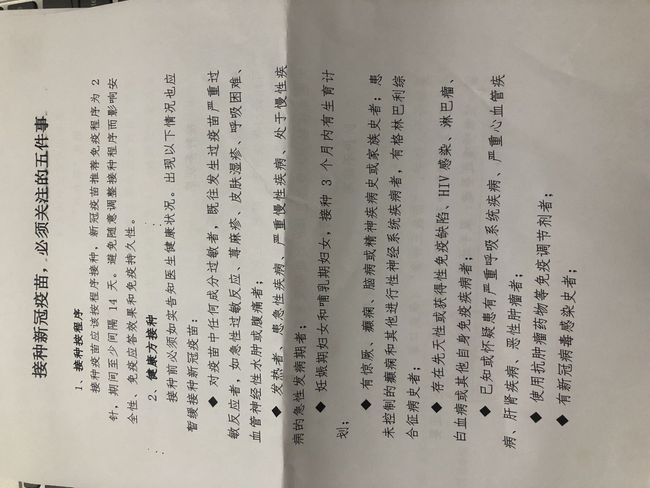 接种新冠疫苗，必须关注的五件事
1、接种按程序
接种疫苗应该按程序接种，新冠疫苗推荐免疫程序为 2
针，期间至少间隔 14 天。避免随意调整接种程序而影响安
全性、免疫应答效果和免疫持久性。
2、健康方接种
接种前必须如实告知医生健康状况。出现以下情况也应
暂缓接种新冠疫苗：
◆ 对疫苗中任何成分过敏者，既往发生过疫苗严重过
敏反应者，如急性过敏反应、荨麻疹、皮肤湿疹、呼吸困难、
血管神经性水肿或腹痛者；
◆ 发热者、患急性疾病、严重慢性疾病、处于慢性疾
病的急性发病期者；
◆ 妊娠期妇女和哺乳期妇女，接种 3 个月内有生育计
划；
◆ 有惊厥、癫痫、脑病或精神疾病史或家族史者；患
未控制的癫痫和其他进行性神经系统疾病者，有格林巴利综
合征病史者；
◆ 存在先天性或获得性免疫缺陷、HIV 感染、淋巴瘤、
白血病或其他自身免疫疾病者；
◆ 已知或怀疑患有严重呼吸系统疾病、严重心血管疾
病、肝肾疾病、恶性肿瘤者；
◆ 使用抗肿瘤药物等免疫调节剂者；
◆ 有新冠病毒感染史者；